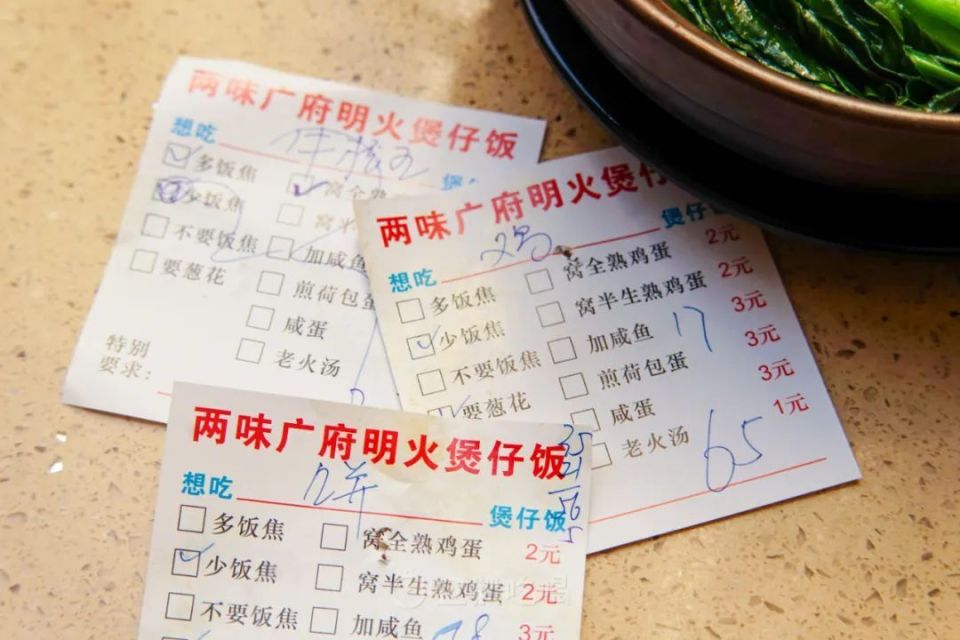 两味广府明火煲仔饭
想吃
多饭焦
窝全熟
少饭焦
窝半
不要饭焦
加咸鱼
要葱花
煎荷包蛋
咸蛋
特别
要求：
老火汤
两味广府明火煲仔
想吃 鸡 煲仔
多饭焦 窝全熟鸡蛋 2元
少饭焦 窝半生熟鸡蛋 2元
不要饭焦 加咸鱼 17 3元
要葱花 煎荷包蛋 3元
咸蛋 3元
老火汤 65 1元
两味广府明火煲仔饭
想吃 煲仔饭
多饭焦 窝全熟鸡蛋 2元
少饭焦 窝半生熟鸡蛋 2元
不要饭焦 加咸鱼 3元